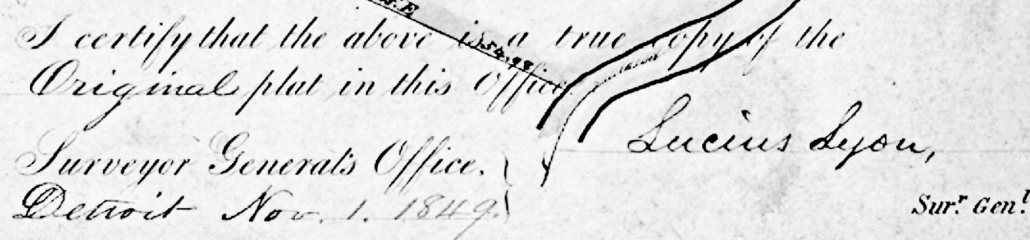 I certify that the above is a true copy of the
Original plat in this Office.
Surveyor General's Office.
Detroit Nov. 1. 1849.
Lucius Lyon,
Sur.r Gen.l